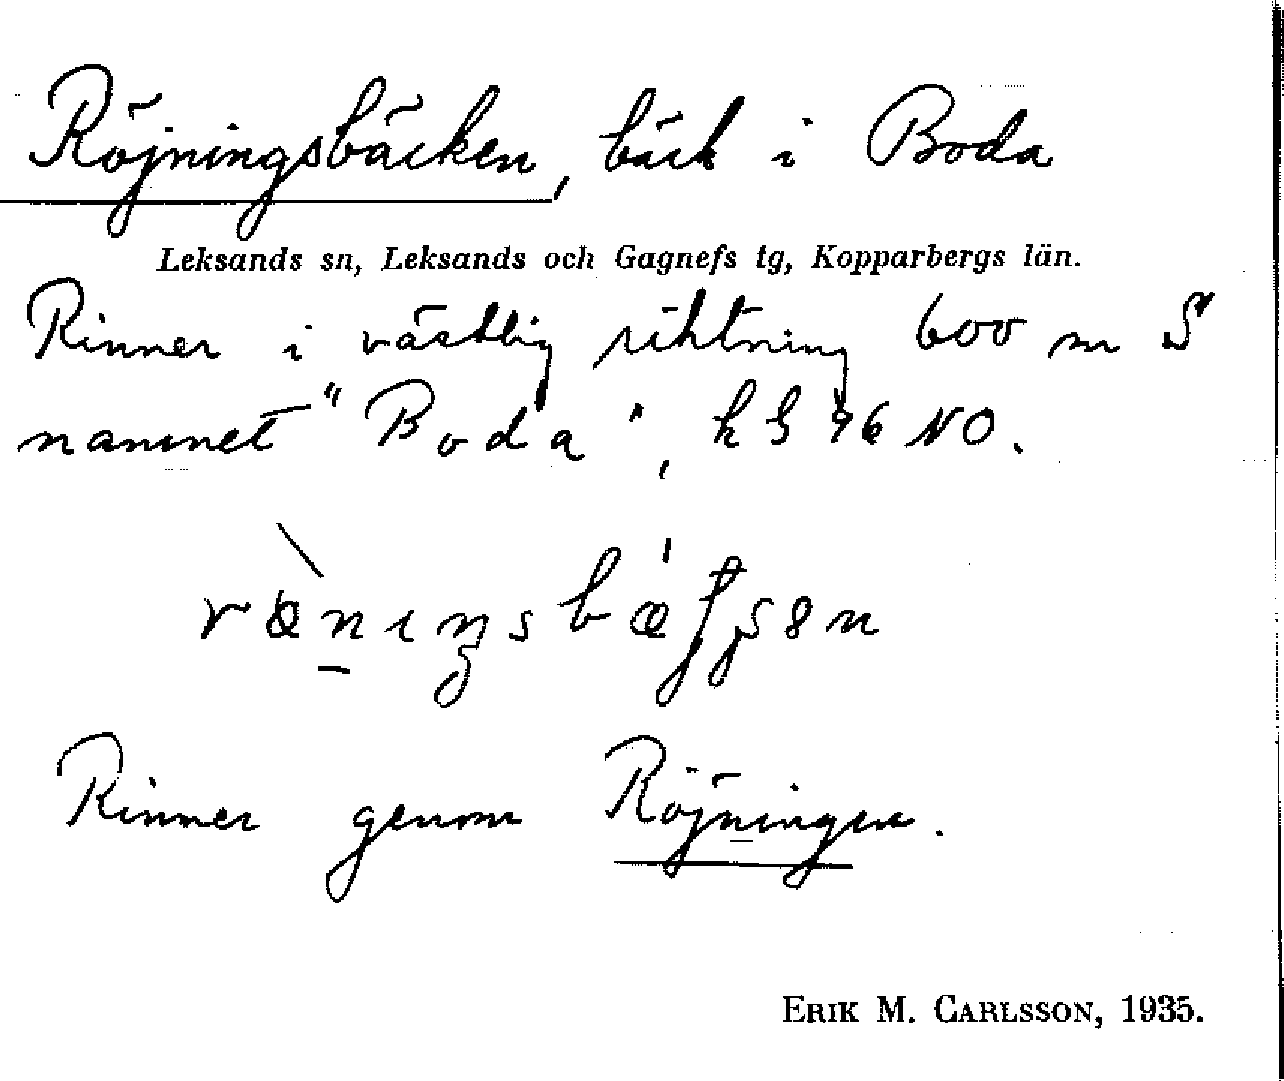 Röjningsbäcken, bäck i Boda
Leksands sn, Leksands och Gagnefs tg, Kopparbergs län.
Rinner i västlig riktning 600 m S
namnet "Boda", kb 96 NO.
Rinner genom Röjningen.
ERIK M. CARLSSON, 1935.